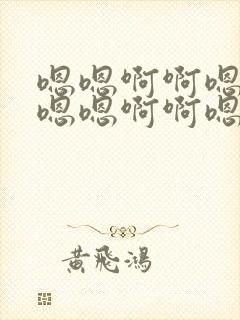 嗯嗯啊啊嗯
嗯嗯啊啊嗯
黄飛鴻